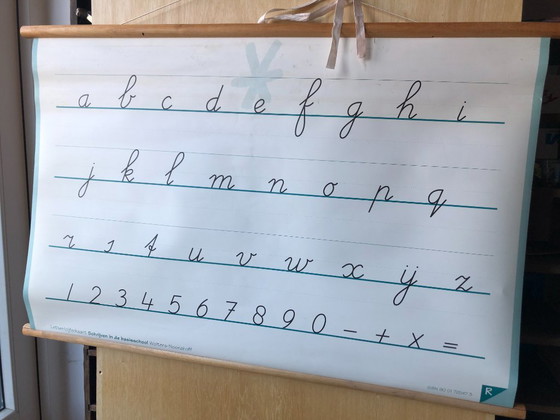 a b c d e f g h i
j k l m n o p q
r s t u v w x ij z
1 2 3 4 5 6 7 8 9 0 - + x =
Schrijven in de basisschool
R